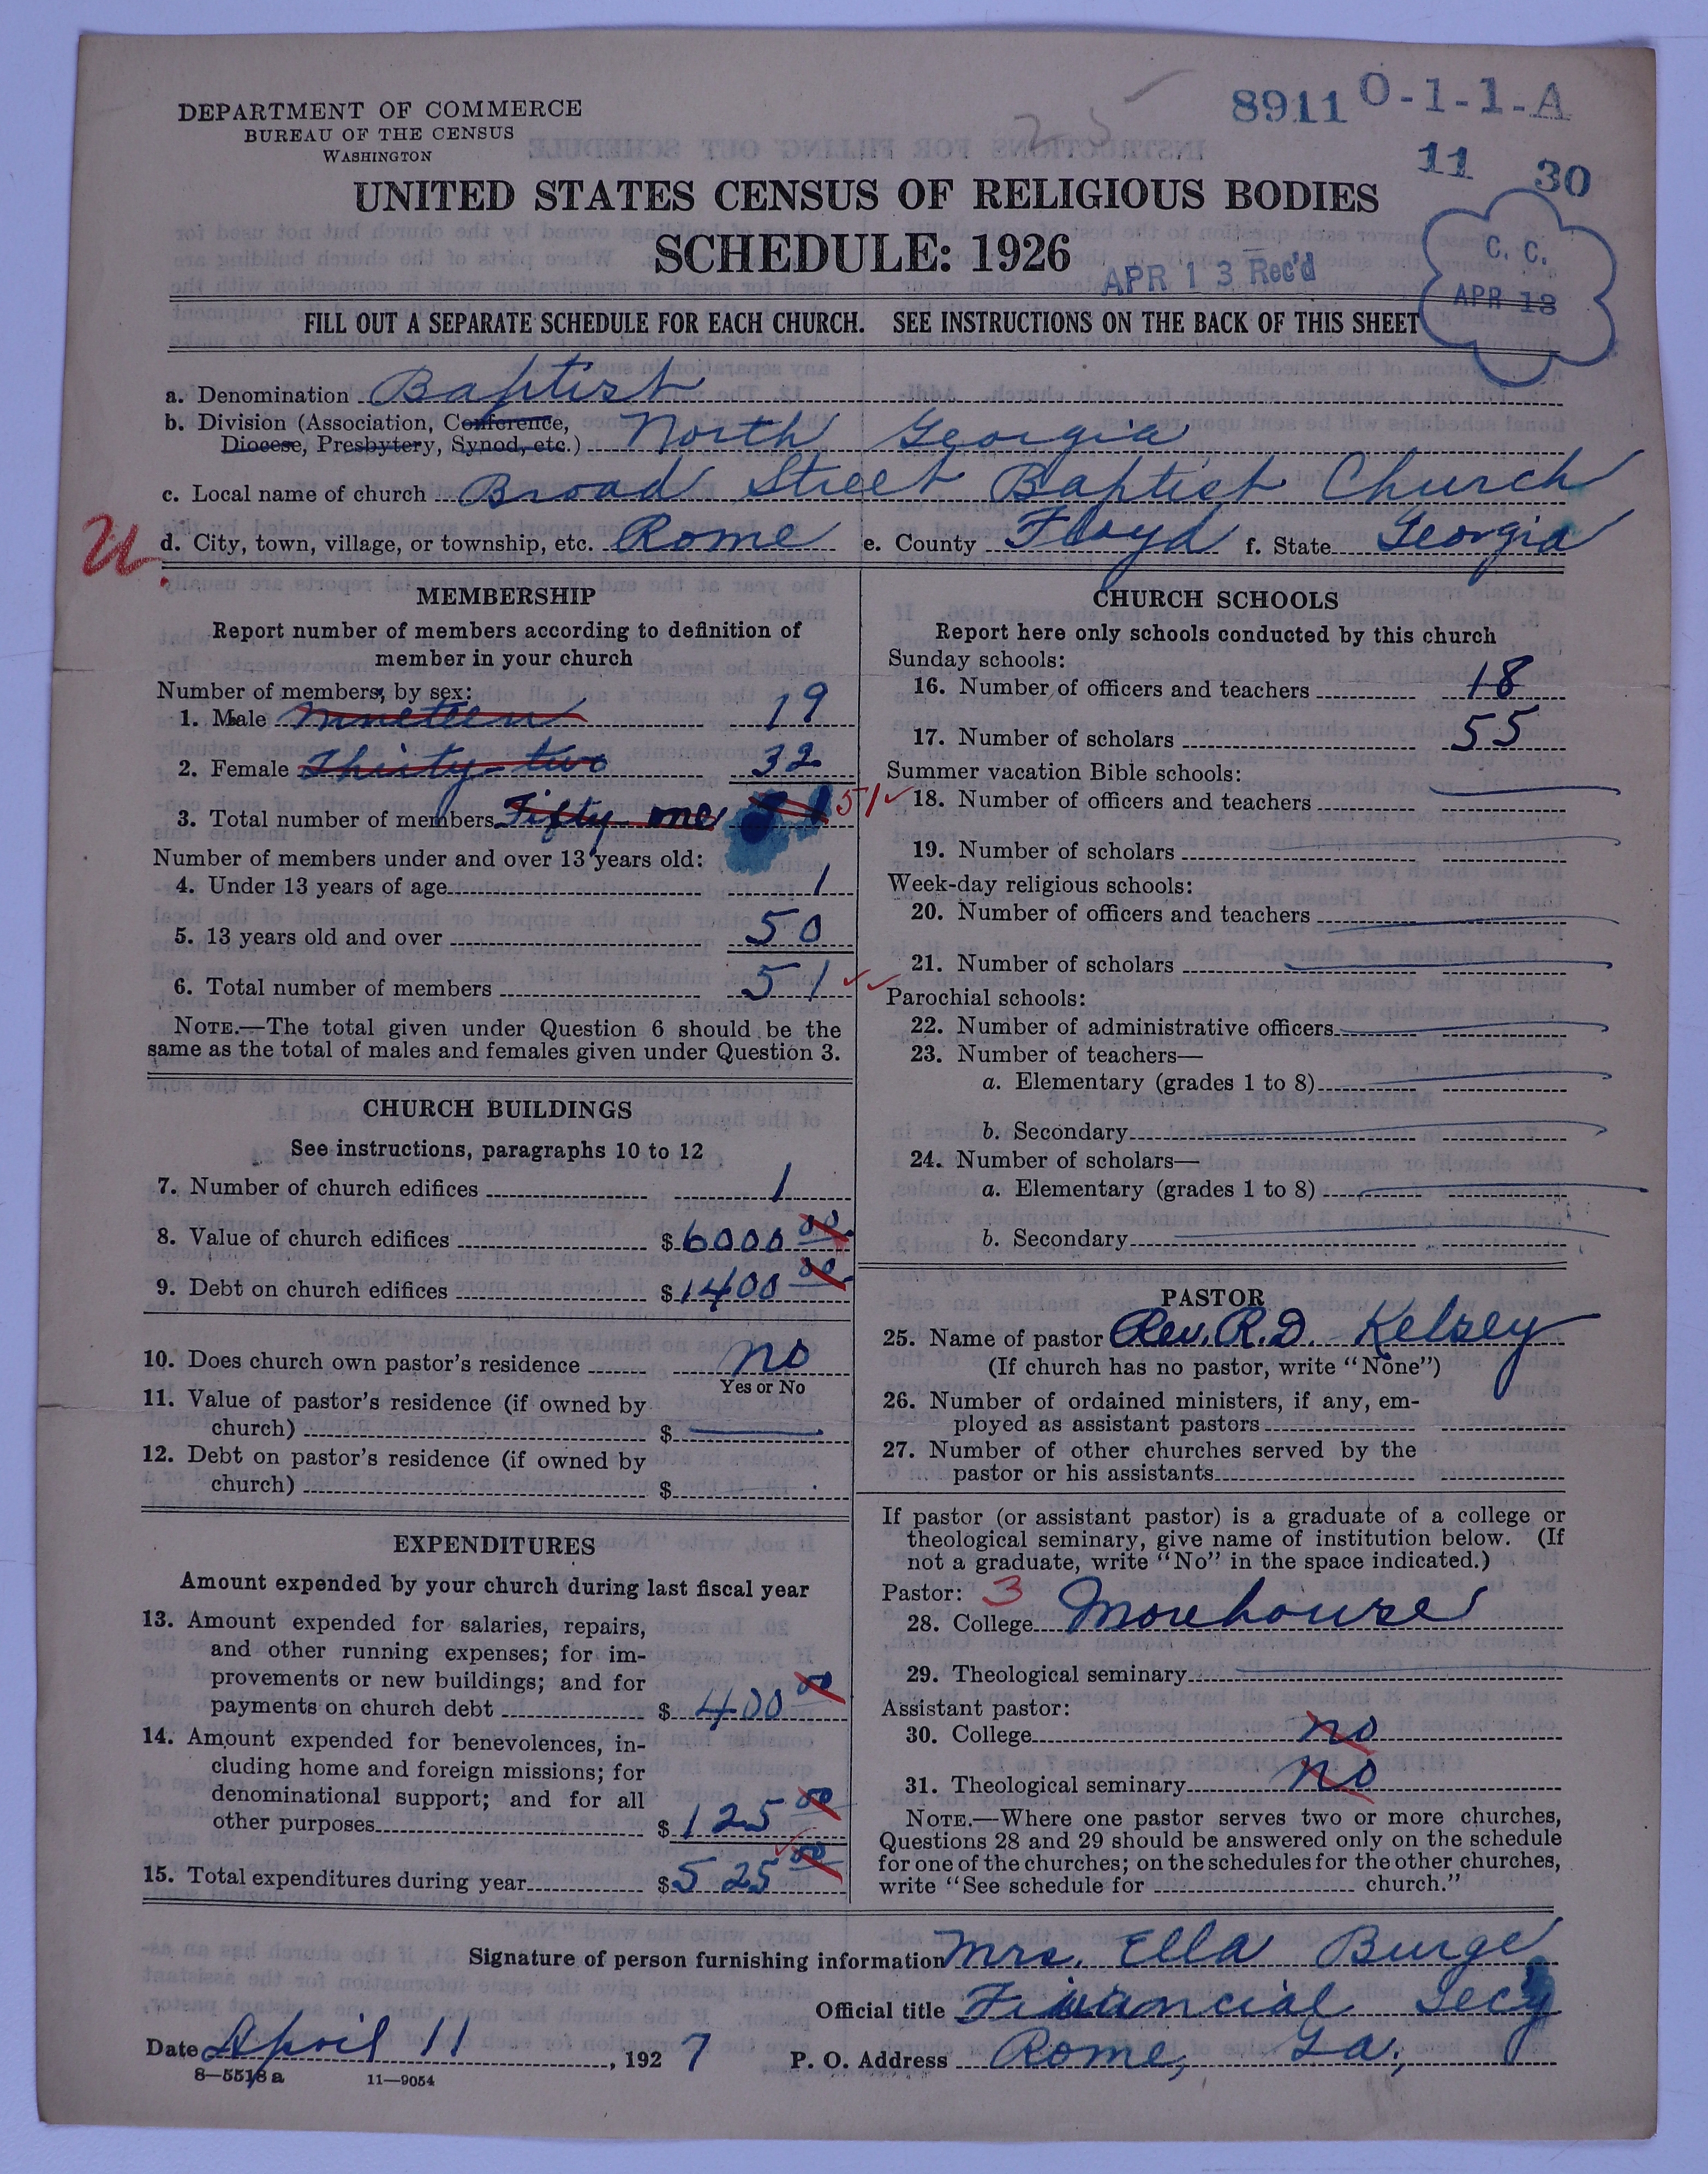 DEPARTMENT OF COMMERCE
BUREAU OF THE CENSUS
WASHINGTON
8911 O-1-1-A
11 30
UNITED STATES CENSUS OF RELIGIOUS BODIES
SCHEDULE: 1926
APR 13 Rec'd
C. C.
APR 13
FILL OUT A SEPARATE SCHEDULE FOR EACH CHURCH. SEE INSTRUCTIONS ON THE BACK OF THIS SHEET
a. Denomination Baptist
b. Division (Association, Conference,
Diocese, Presbytery, Synod, etc.) North Georgia
c. Local name of church Broad Street Baptist Church
U.
d. City, town, village, or township, etc. Rome e. County Floyd f. State Georgia
MEMBERSHIP
Report number of members according to definition of
member in your church
Number of members, by sex:
1. Male Nineteen 19
2. Female Thirty-two 32
3. Total number of members Fifty one 51 51
Number of members under and over 13 years old:
4. Under 13 years of age 1
5. 13 years old and over 50
6. Total number of members 51
NOTE.—The total given under Question 6 should be the
same as the total of males and females given under Question 3.
CHURCH BUILDINGS
See instructions, paragraphs 10 to 12
7. Number of church edifices 1
8. Value of church edifices $6000 00
9. Debt on church edifices $1400 00
10. Does church own pastor's residence no
Yes or No
11. Value of pastor's residence (if owned by
church) $
12. Debt on pastor's residence (if owned by
church) $
EXPENDITURES
Amount expended by your church during last fiscal year
13. Amount expended for salaries, repairs,
and other running expenses; for im-
provements or new buildings; and for
payments on church debt $ 400 00
14. Amount expended for benevolences, in-
cluding home and foreign missions; for
denominational support; and for all
other purposes $ 125 00
15. Total expenditures during year $525 00
CHURCH SCHOOLS
Report here only schools conducted by this church
Sunday schools:
16. Number of officers and teachers 18
17. Number of scholars 55
Summer vacation Bible schools:
18. Number of officers and teachers
19. Number of scholars
Week-day religious schools:
20. Number of officers and teachers
21. Number of scholars
Parochial schools:
22. Number of administrative officers
23. Number of teachers—
a. Elementary (grades 1 to 8)
b. Secondary
24. Number of scholars—
a. Elementary (grades 1 to 8)
b. Secondary
PASTOR
25. Name of pastor Rev. R.D. Kelsey
(If church has no pastor, write "None")
26. Number of ordained ministers, if any, em-
ployed as assistant pastors
27. Number of other churches served by the
pastor or his assistants
If pastor (or assistant pastor) is a graduate of a college or
theological seminary, give name of institution below. (If
not a graduate, write "No" in the space indicated.)
Pastor: 3
28. College Morehouse
29. Theological seminary
Assistant pastor:
30. College no
31. Theological seminary no
NOTE.—Where one pastor serves two or more churches,
Questions 28 and 29 should be answered only on the schedule
for one of the churches; on the schedules for the other churches,
write "See schedule for church."
Signature of person furnishing information Mrs. Ella Burge
Official title Financial Secy
Date April 11, 1927 P. O. Address Rome, Ga.
8—5518 a 11—9054